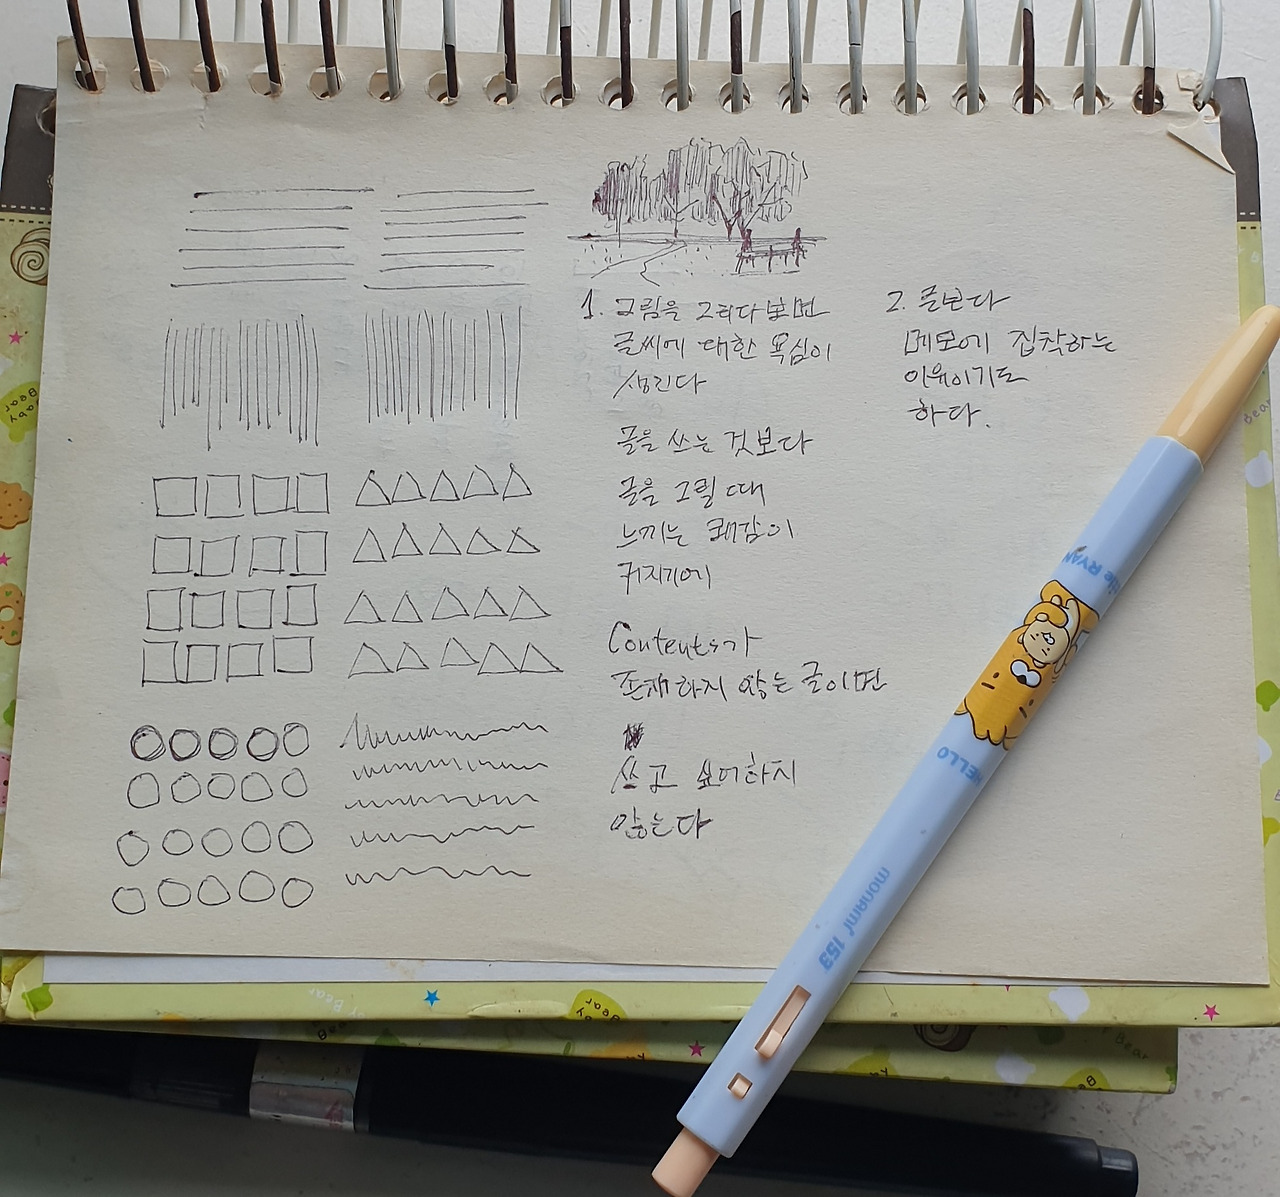 1. 그림을 그리다 보면
글씨에 대한 욕심이
생긴다
글을 쓰는 것보다
글을 그릴 때
느끼는 쾌감이
커지기에
Contents가
존재하지 않는 글이면
쓰고 싶어하지
않는다
2. 글보다
메모에 집착하는
이유이기도
하다.
little RYAN
HELLO
monami 153
Baby
Bear
Bear
Bear
Bear
Bear